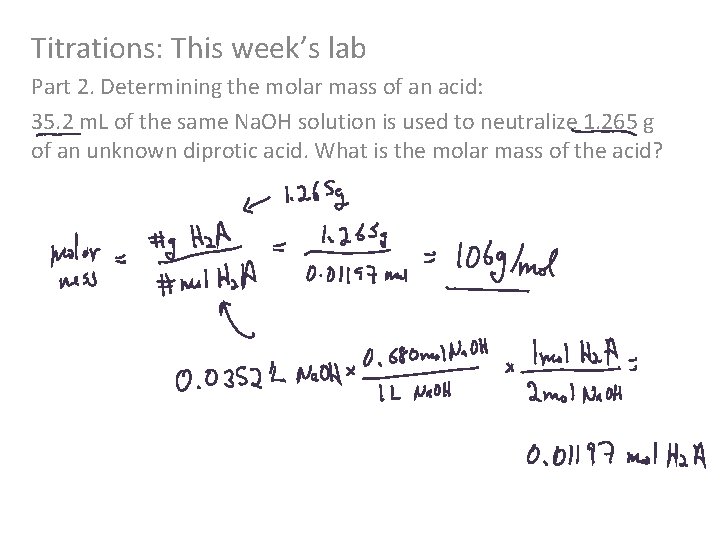 Titrations: This week's lab
Part 2. Determining the molar mass of an acid:
35.2 mL of the same Na.OH solution is used to neutralize 1.265 g
of an unknown diprotic acid. What is the molar mass of the acid?
1.265g
molar mass = #g H₂A / #mol H₂A = 1.265g / 0.01197 mol = 106g/mol
0.0352 L NaOH × 0.680mol NaOH / 1L NaOH × 1mol H₂A / 2mol NaOH =
0.01197 mol H₂A